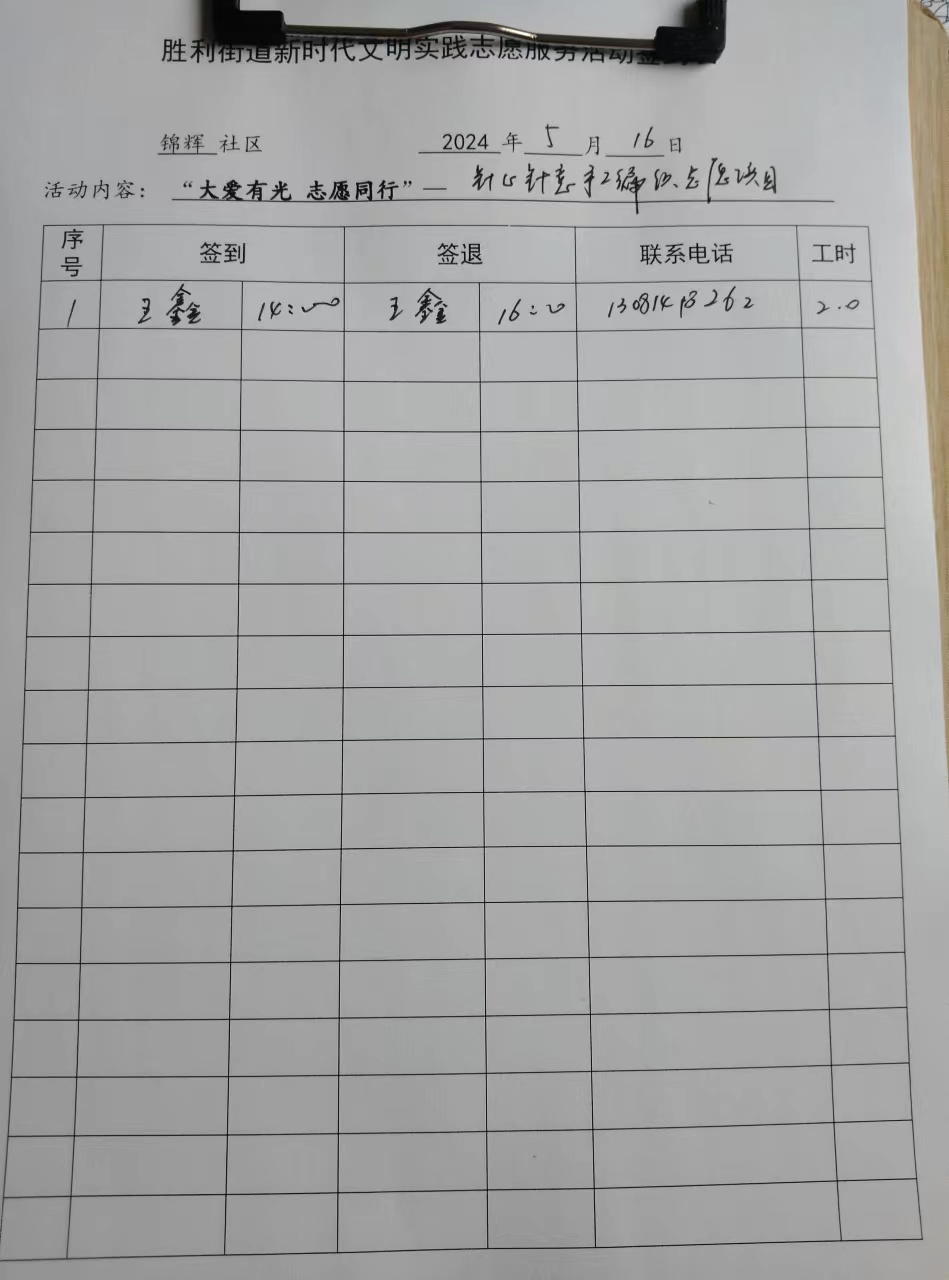 胜利街道新时代文明实践志愿服务活动签到
锦辉 社区 2024 年 5 月 16 日
活动内容： “大爱有光 志愿同行”— 针心针意手工编织志愿项目
序号 签到 签退 联系电话 工时
1 王鑫 14:00 王鑫 16:00 2.0